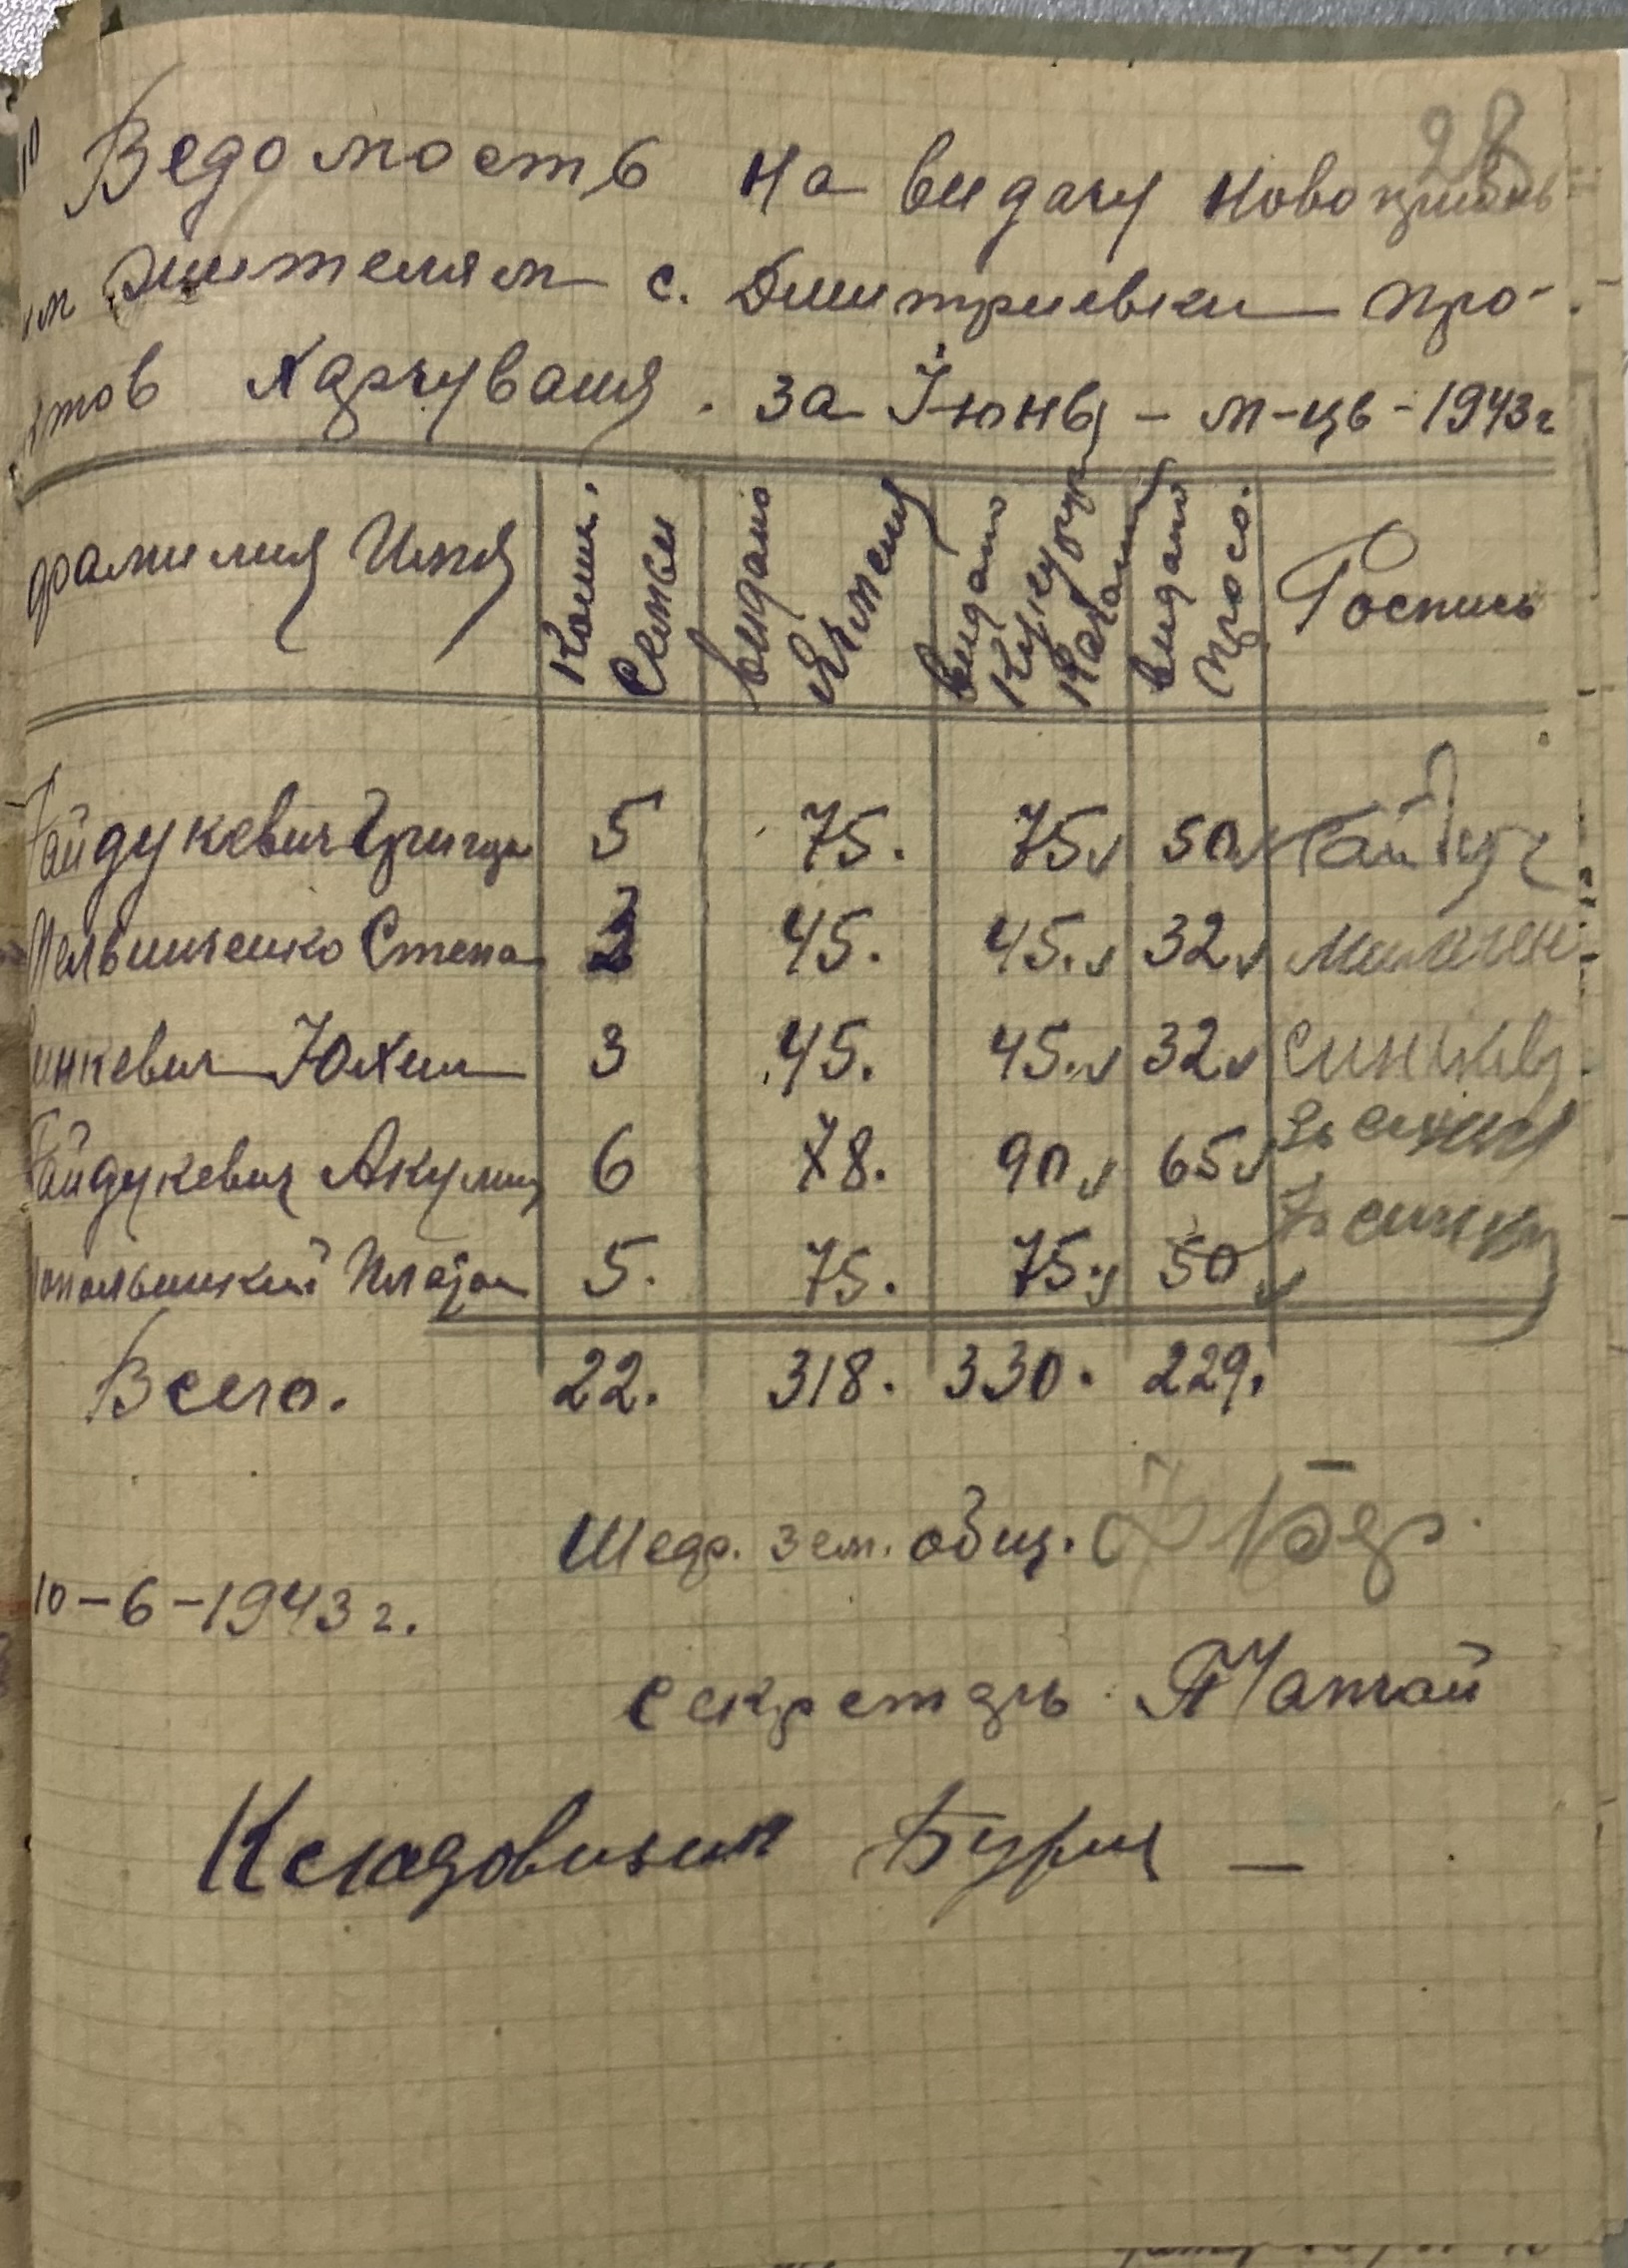 28
Ведомость на видачу новоприбы
им жителям с. Дмитриевки про-
ктов Харчування. за Июнь - м-ць - 1943 г
фамилия Имя Колич. Семьи видано Ячменя видано Кукурузи Качани видано просо. Роспись
Гайдукевич Григор 5 75. 75 v 50 v Гайдук
Мельниченко Степа 3 45. 45. v 32 v
инкевич Юхим 3 45. 45. v 32 v синкевч
Гайдукевич Акулин 6 78. 90 v 65 v
опольницкий Платон 5. 75. 75. v 50 v
Всего. 22. 318. 330. 229.
Шедр. зем. общ.
10-6-1943 г.
секретарь
Кладовщик Буряк —